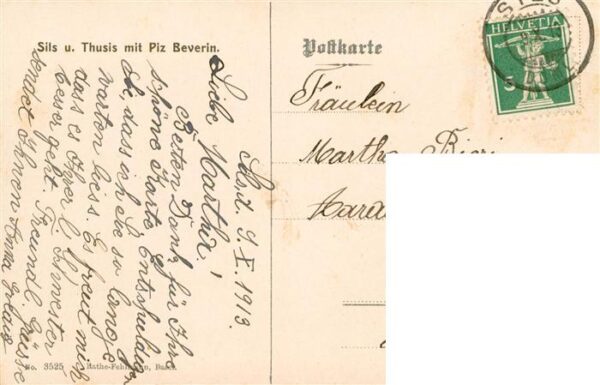 Sils u. Thusis mit Piz Beverin.
Postkarte
HELVETIA
5
d. 9. X. 1913.
Liebe Martha!
Besten Dank für Ihr
schöne Karte. Entschuldig.
dass ich Sie so lange
warten liess. Es freut mich
dass es Ihrer l. Schwester
besser geht. Freundl. Grüsse
sendet Ihnen Anna
Fräulein
Martha
No. 3525
Basel.